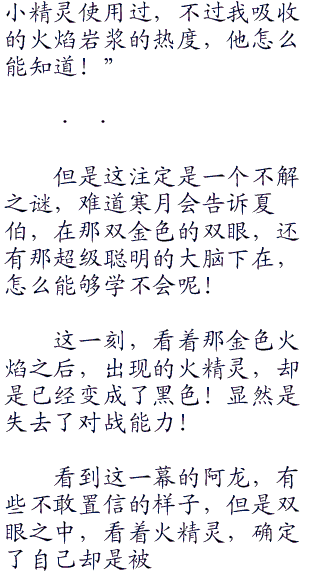 小精灵使用过，不过我吸收
的火焰岩浆的热度，他怎么
能知道！”
． ．
但是这注定是一个不解
之谜，难道寒月会告诉夏
伯，在那双金色的双眼，还
有那超级聪明的大脑下在，
怎么能够学不会呢！
这一刻，看着那金色火
焰之后，出现的火精灵，却
是已经变成了黑色！显然是
失去了对战能力！
看到这一幕的阿龙，有
些不敢置信的样子，但是双
眼之中，看着火精灵，确定
了自己却是被